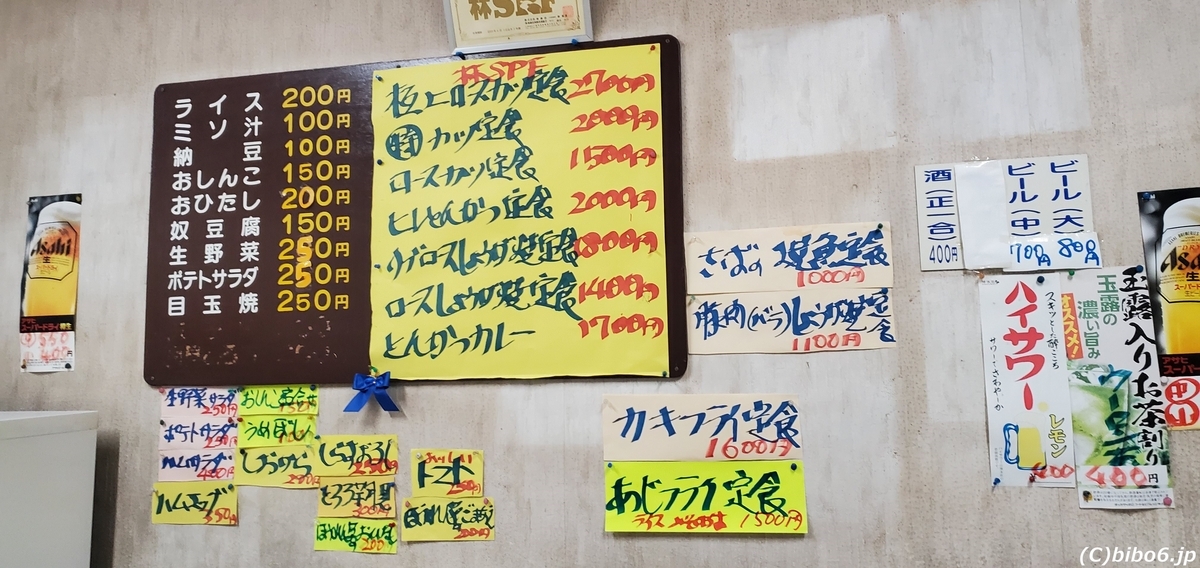 林SPF
ライス 200円
ミソ汁 100円
納豆 100円
おしんこ 150円
おひたし 200円
奴豆腐 150円
生野菜 250円
ポテトサラダ 250円
目玉焼 250円
林SPF
極上ロースカツ定食 2700円
特カツ定食 2000円
ロースカツ定食 1500円
ヒレとんかつ定食 2000円
ロースしょうが焼定食 1400円
とんかつカレー 1700円
さばの塩焼定食
1000円
豚肉(バラ)しょうが焼定食
1100円
カキフライ定食
1600円
あじフライ定食
1500円
生野菜サラダ
250円
ポテトサラダ
250円
ハムサラダ
400円
ハムエッグ
350円
おしんこ盛合せ
うめぼし
しおから
200円
しらすおろし
250円
とろろ
300円
200円
おいしい
トマト
250円
200円
酒(正一合)
400円
ビール(中)
700円
ビール(大)
800円
スキッとした酔ごこち
ハイサワー
サワーってさわやーか
レモン
400
玉露の
濃い旨み
オススメ!
玉露入りお茶割り
400円
Asahi
生
スーパードライ
アサヒ
スーパー
(C)bibo6.jp